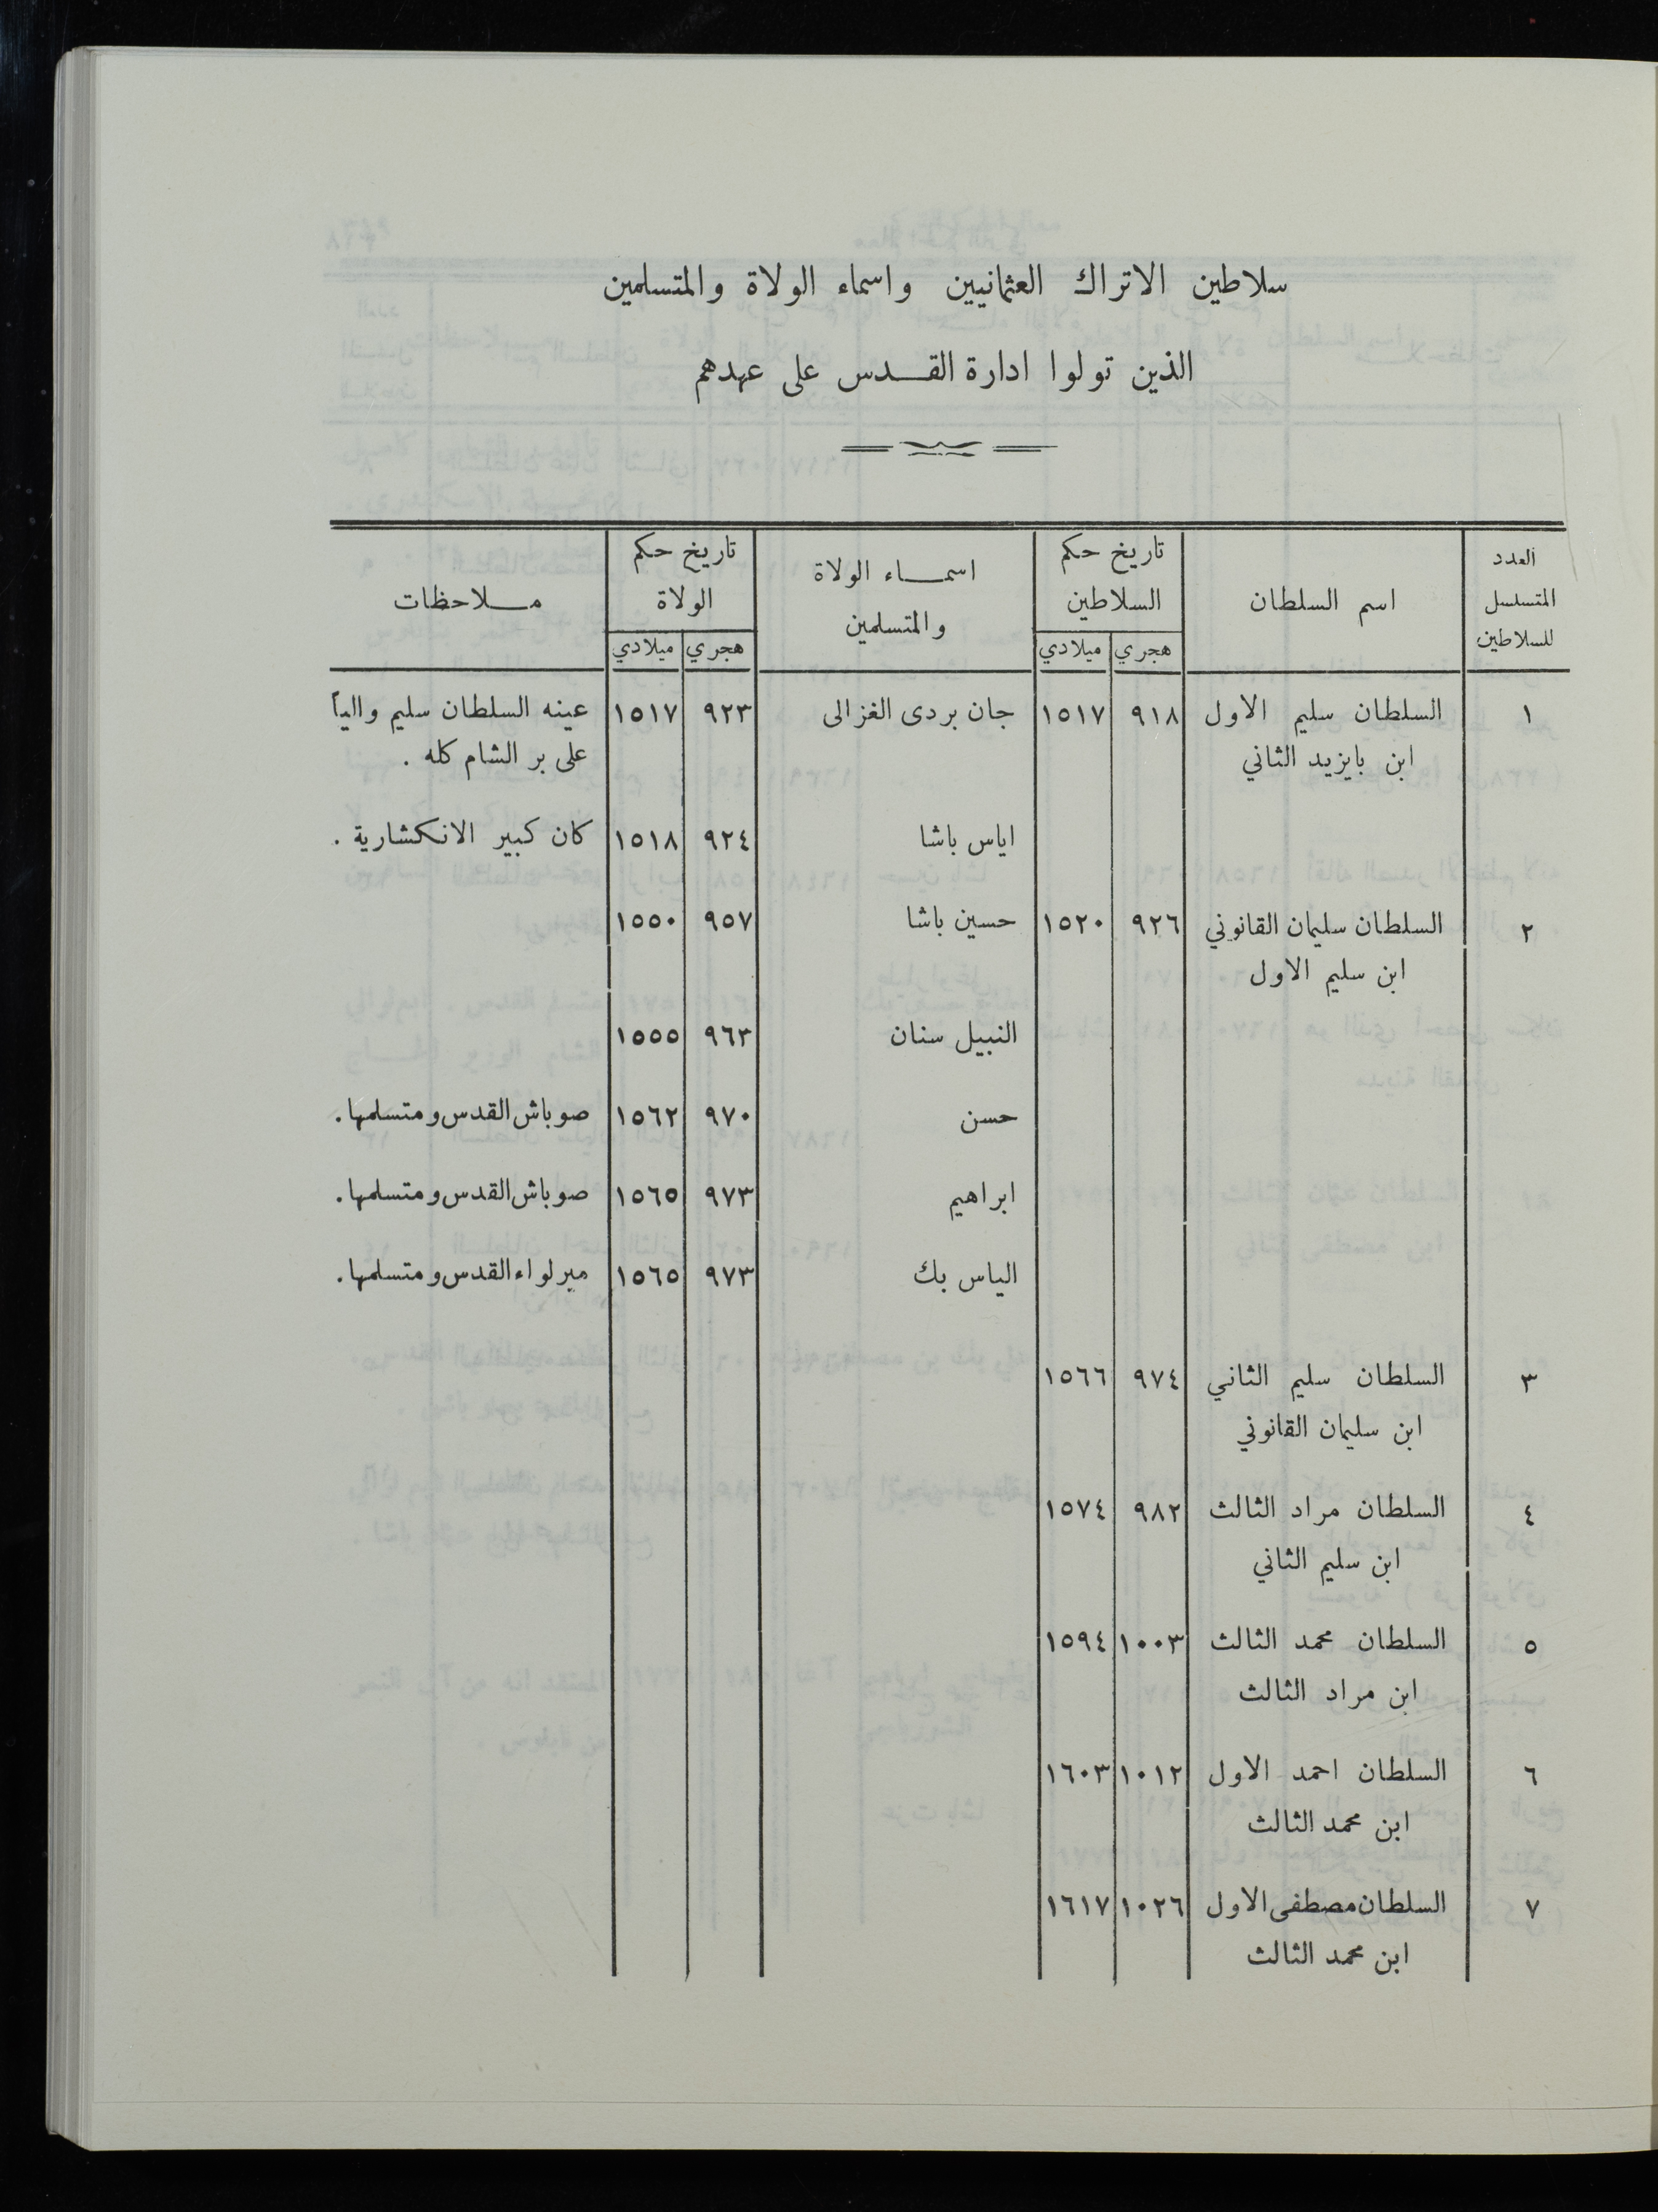 سلاطين الاتراك العثمانيين واسماء الولاة والمتسلمين
الذين تولوا ادارة القدس على عهدهم
العدد المتسلسل للسلاطين | اسم السلطان | تاريخ حكم السلاطين | اسماء الولاة والمتسلمين | تاريخ حكم الولاة | ملاحظات
هجري | ميلادي | هجري | ميلادي
١ | السلطان سليم الاول | ٩١٨ | ١٥١٧ | جان بردى الغزالى | ٩٢٣ | ١٥١٧ | عينه السلطان سليم والياً
ابن بايزيد الثاني | على بر الشام كله .
اياس باشا | ٩٢٤ | ١٥١٨ | كان كبير الانكشارية .
٢ | السلطان سليمان القانوني | ٩٢٦ | ١٥٢٠ | حسين باشا | ٩٥٧ | ١٥٥٠
ابن سليم الاول
النبيل سنان | ٩٦٣ | ١٥٥٥
حسن | ٩٧٠ | ١٥٦٢ | صوباش القدس ومتسلمها .
ابراهيم | ٩٧٣ | ١٥٦٥ | صوباش القدس ومتسلمها .
الياس بك | ٩٧٣ | ١٥٦٥ | مير لواء القدس ومتسلمها .
٣ | السلطان سليم الثاني | ٩٧٤ | ١٥٦٦
ابن سليمان القانوني
٤ | السلطان مراد الثالث | ٩٨٢ | ١٥٧٤
ابن سليم الثاني
٥ | السلطان محمد الثالث | ١٠٠٣ | ١٥٩٤
ابن مراد الثالث
٦ | السلطان احمد الاول | ١٠١٢ | ١٦٠٣
ابن محمد الثالث
٧ | السلطان مصطفى الاول | ١٠٢٦ | ١٦١٧
ابن محمد الثالث